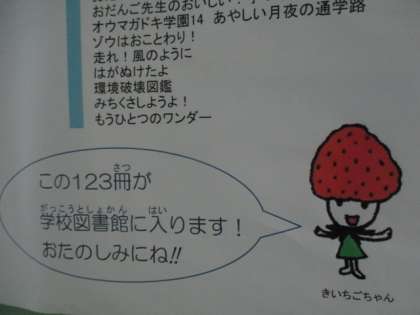 おだんご先生のおいしい!
オウマガドキ学園14 あやしい月夜の通学路
ゾウはおことわり!
走れ!風のように
はがぬけたよ
環境破壊図鑑
みちくさしようよ!
もうひとつのワンダー
さつ
この123冊が
がっこうとしょかん はい
学校図書館に入ります!
おたのしみにね!!
きいちごちゃん